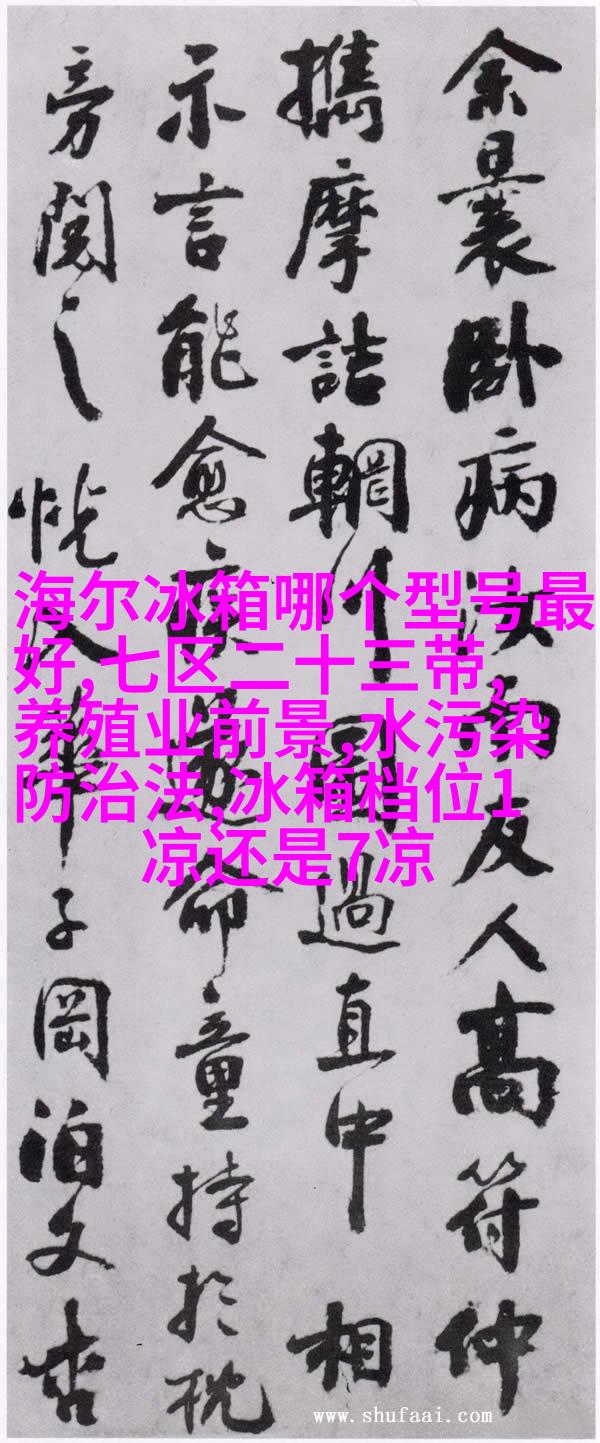 余曩卧病汝南友人高符仲
攜摩詰輞川圖過直中相
示言能愈疾遂命童持於枕
旁閱之恍入華子岡泊文杏
海尔冰箱哪个型号最
好,七区二十三带,
养殖业前景,水污染
防治法,冰箱档位1
凉还是7凉
www.shufaai.com